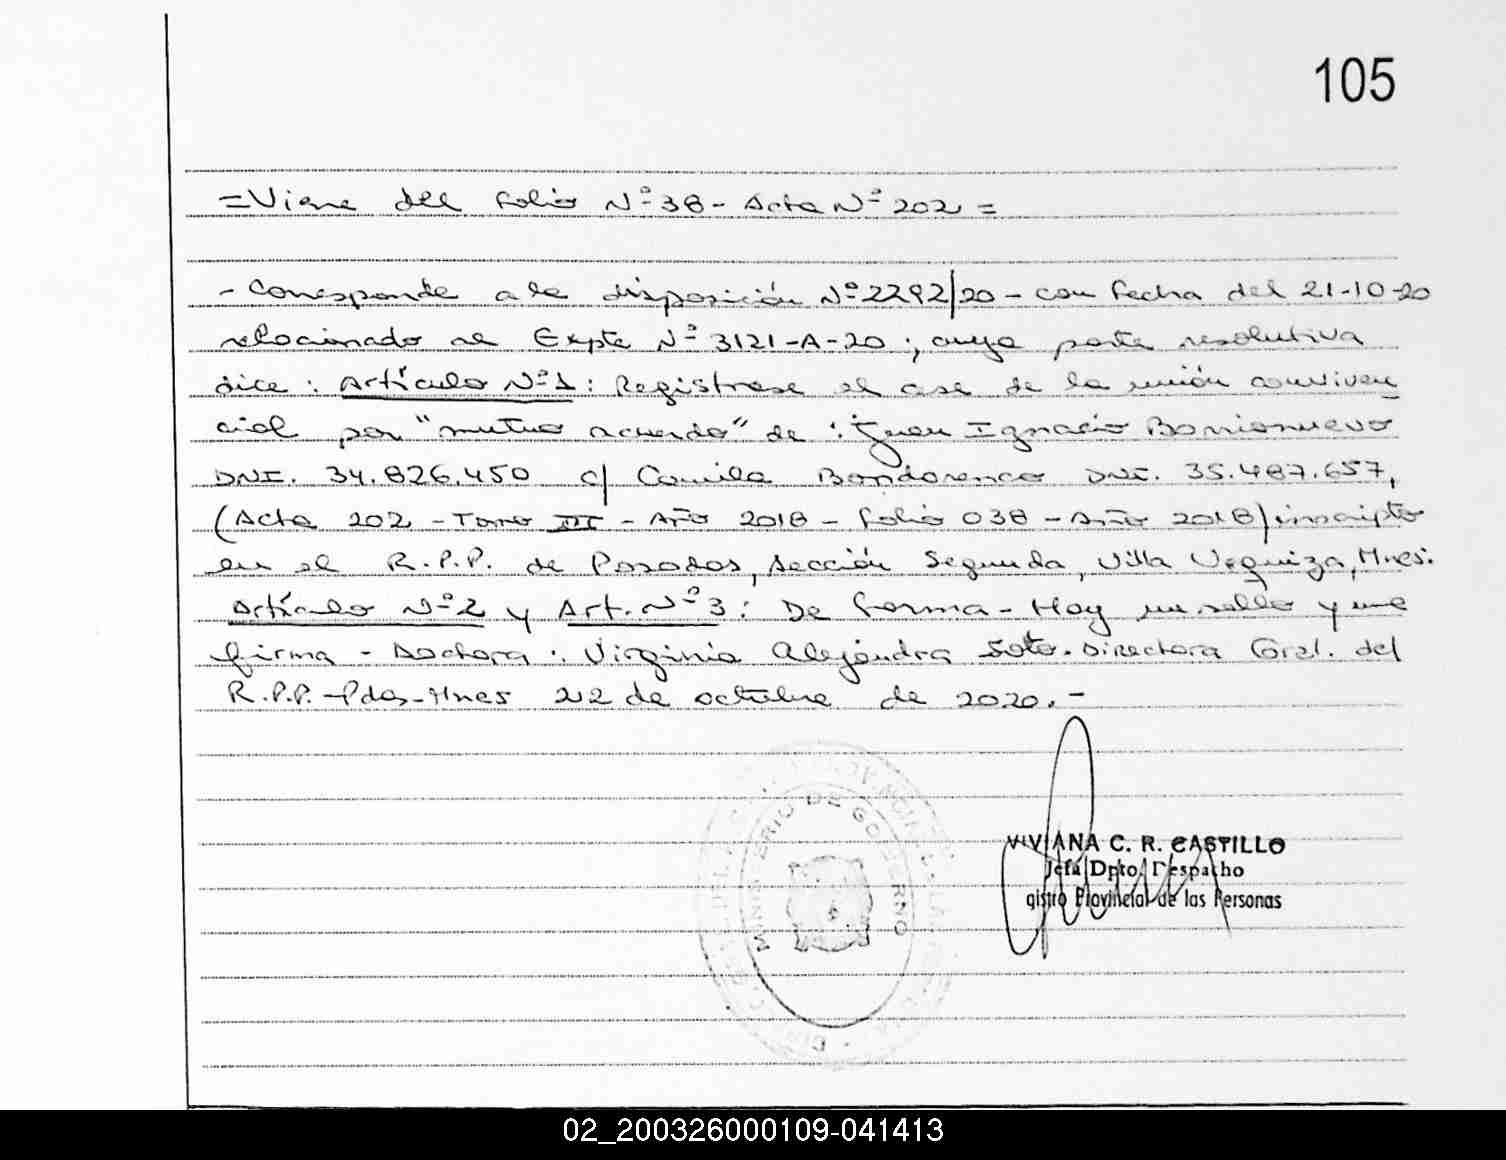 105
=Viene del folio Nº 38 - Acta Nº 202 =
- Corresponde a la disposición Nº 2292/20 - con fecha del 21-10-20
relacionado al Expte Nº 3121-A-20; cuya parte resolutiva
dice: Artículo Nº 1: Registrase el cese de la unión conviven
cial por "mutuo acuerdo" de: Juan Ignacio Barrionuevo
DNI. 34.826.450 c/ Camila Bondarenco DNI. 35.487.657,
(Acta 202 - Tomo III - Año 2018 - folio 038 - Año 2018) inscripto
en el R.P.P. de Posadas, sección Segunda, Villa Urquiza, Mnes.
Artículo Nº 2 y Art. Nº 3: De forma - Hay un sello y una
firma - Doctora: Virginia Alejandra Soto. Directora Gral. del
R.P.P. - Pdas - Mnes 22 de octubre de 2020. -
MINISTERIO DE GOBIERNO
VIVIANA C. R. CASTILLO
Jefa Dpto. Despacho
gistro Provincial de las Personas
02_200326000109-041413